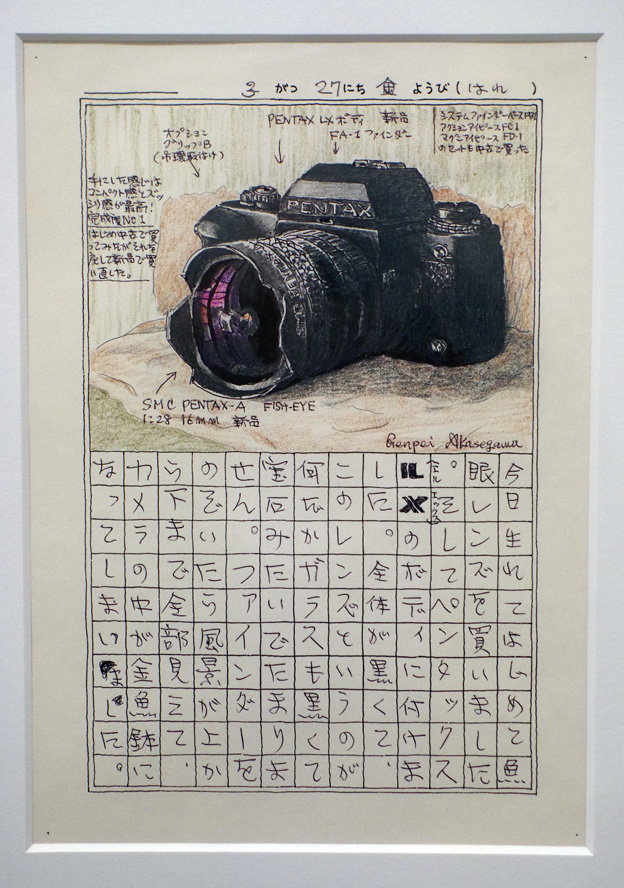 3 がつ 27にち 金 ようび(はれ )
PENTAX LXボディ 新品
FA-1 ファインダー
システムファインダーベースFB1
アクションアイピースFC1
マグニアイピース FD-1
のセットも中古で買った
オプション
グリップB
(吊環取付け)
手にした感じは
コンパクト感とズッ
シリ感が最高!
完成度No.1
はじめ中古で買
ってみたがそれを
して新品で買
い直した。
PENTAX
SMC PENTAX-A FISH-EYE
1:2.8 16mm 新品
Genpei Akasegawa
今日生れてはじめて魚
眼レンズを買いました
。そしてペンタックス
LXのボディに付けま
エルエックス
した。全体が黒くて、
このレンズというのが
何だかガラスも黒くて
宝石みたいでたまりま
せん。ファインダーを
のぞいたら風景が上か
ら下まで全部見えて、
カメラの中が金魚鉢に
なってしまいました。